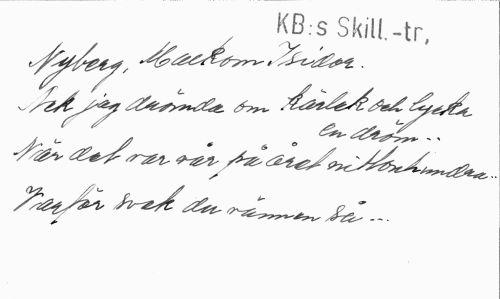 KB:s Skill.-tr,
Nyberg, Malkom Isidor.
Ack jag drömde om kärlek och lycka
en dröm...
När det var vår på året nittonhundra...
Varför svek du vännen så...